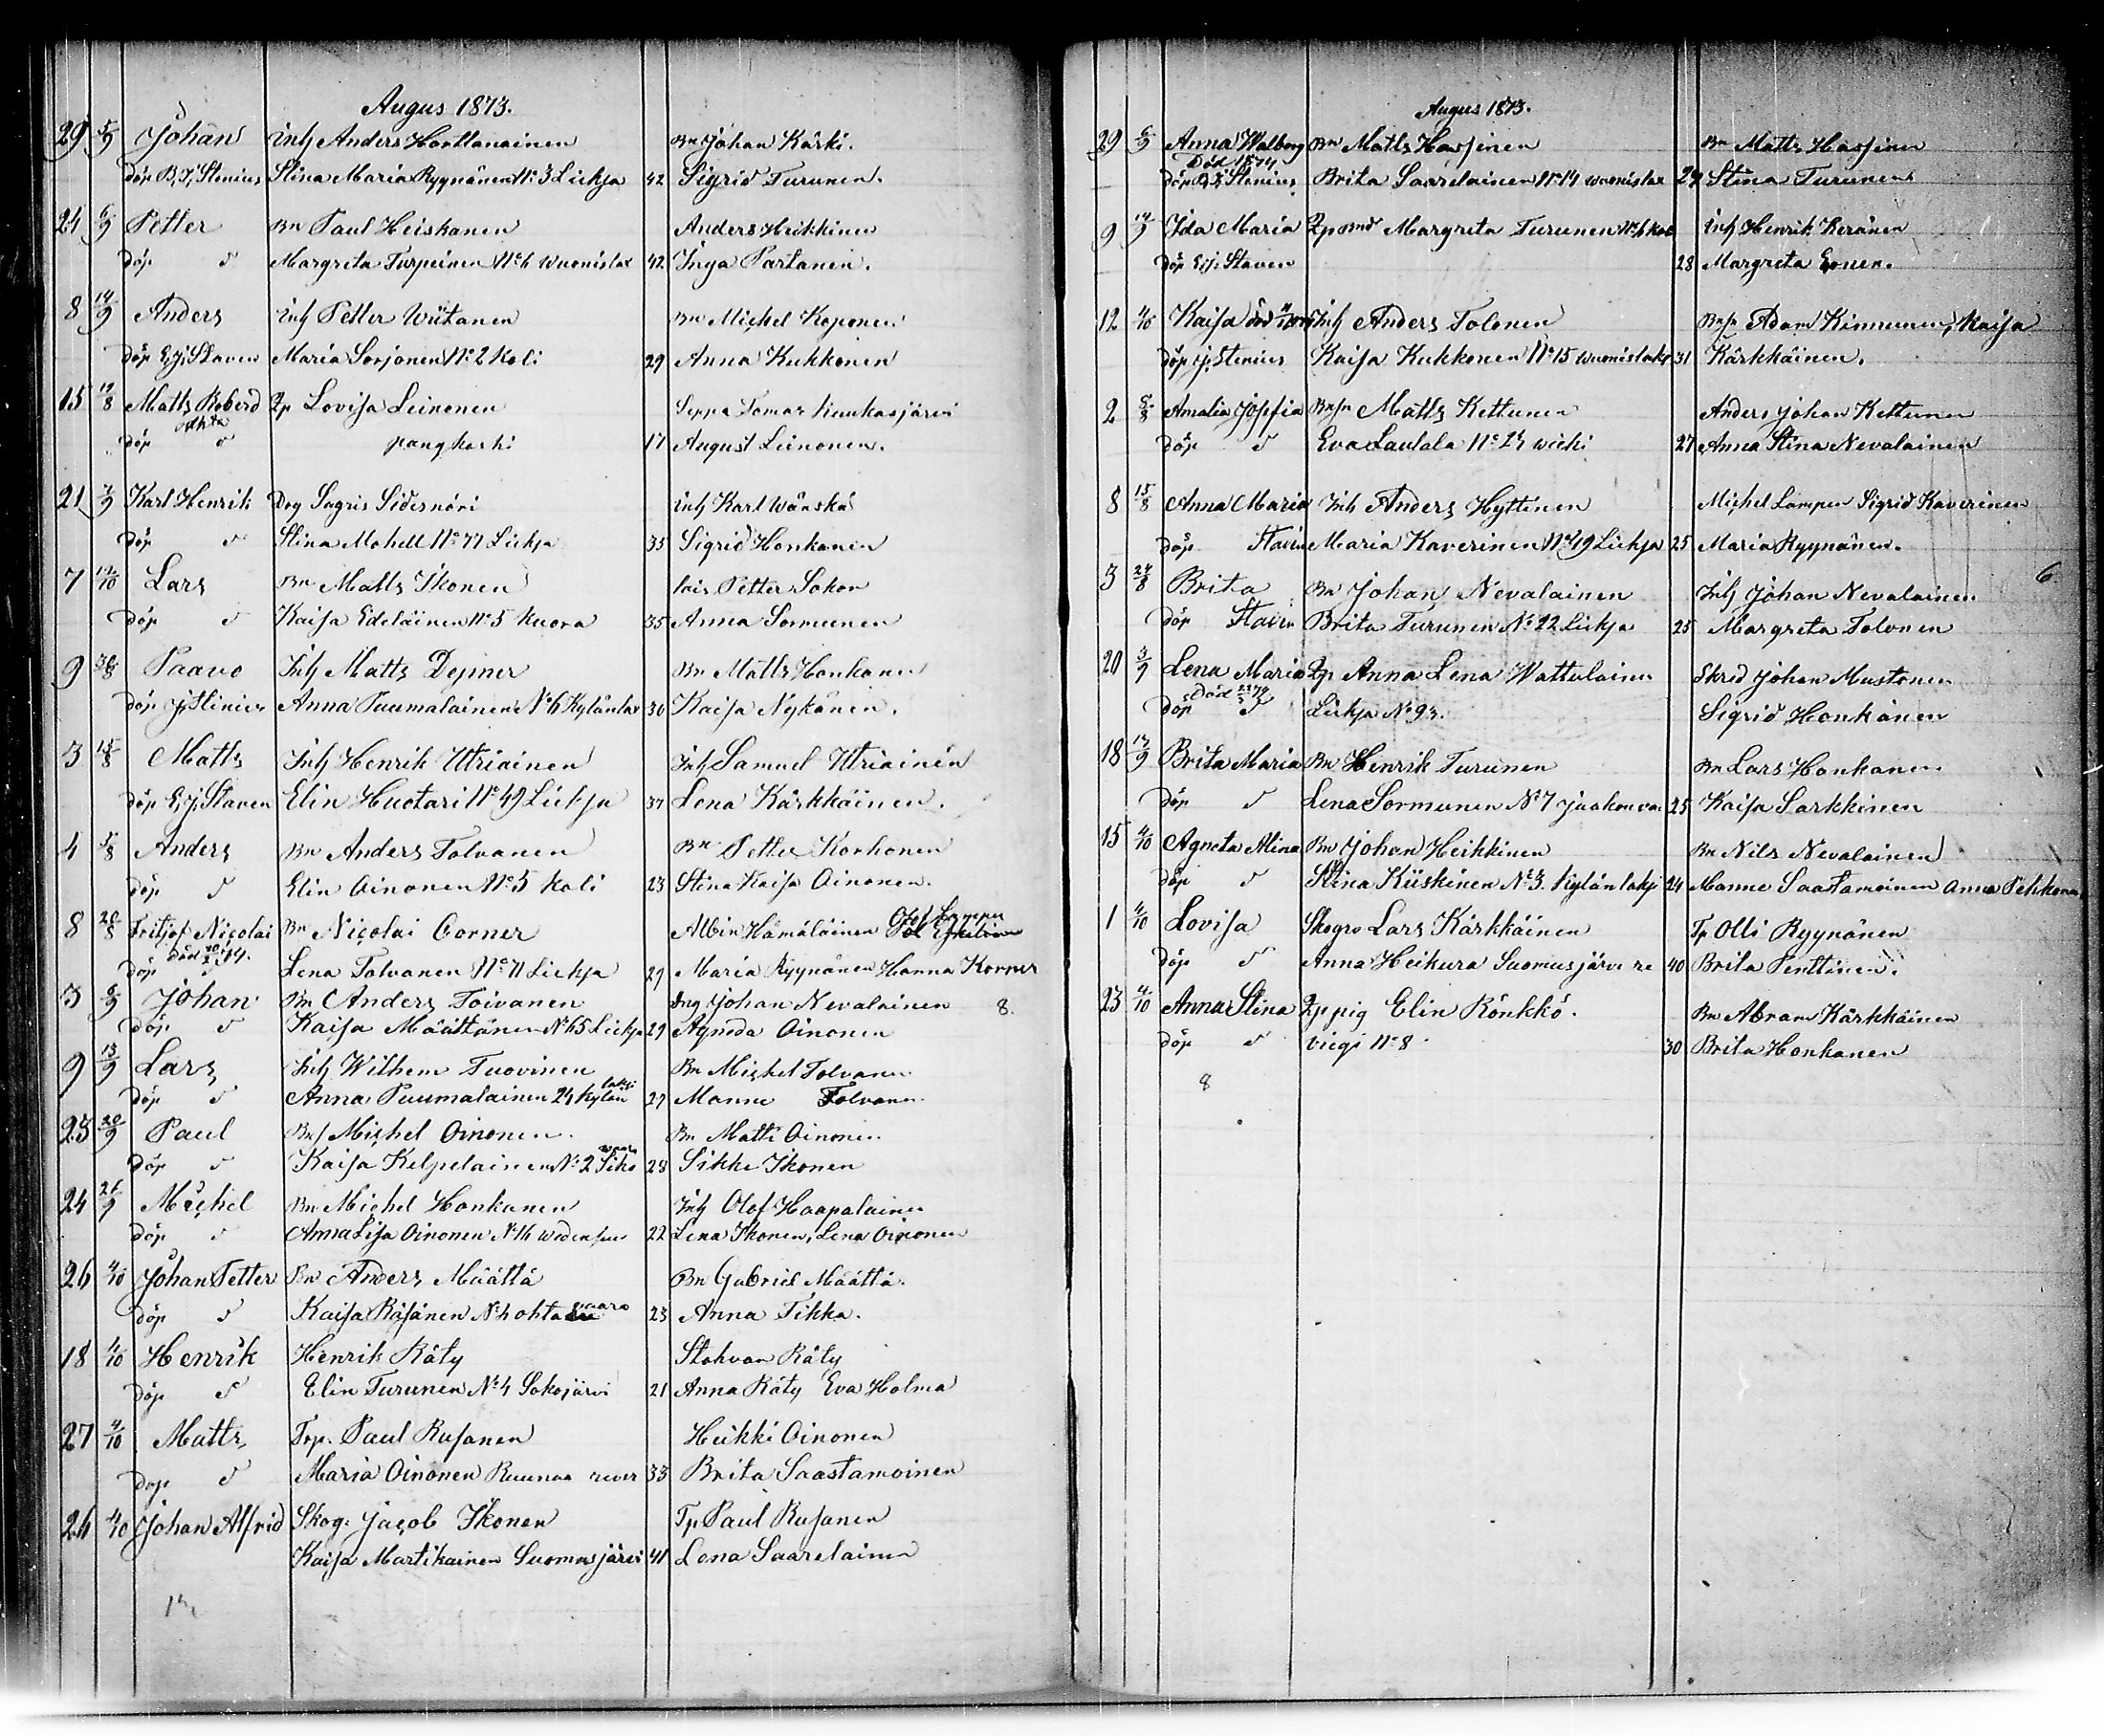 Augus 1873.
29 5/9 Johan Inh Anders Horttanainen Bn Johan Kärki.
döp B, J, Stenius Stina Maria Ryynänen No 3 Liekja 42 Sigrid Turunen.
24 6/9 Petter Bn Paul Heiskanen Anders Heikkinen
döp d Margreta Turpeinen No 6 Wuonislax 42 Inga Partanen.
8 14/9 Anders Inh Petter Wiitanen Bn Michel Koponen
döp E, J, Staven Maria Sorjonen No 2 Koli 29 Anna Kukkonen
15 19/8 Matts Roberd Qp Lovisa Leinonen Seppa Tomas Kuukasjärvi
döp d pangkoski 17 August Leinonen.
21 7/9 Karl Henrik Dog Sagris Sidesnöri Inh Karl Wänskä
döp d Stina Mohell No 77 Liekja 35 Sigrid Honkanen
7 12/10 Lars Bn Matts Ikonen Petter Sokon
döp d Kaisa Edeläinen No 5 Kuora 35 Anna Sormunen
9 30/8 Paavo Inh Matts Dejmer Bn Matts Honkanen
döp J, Stenius Anna Puumalainen No 6 Kylänlax 30 Kaisa Nykänen.
3 15/8 Matts Inh Henrik Utriainen Inh Samuel Utriainen
döp E, J, Staven Elin Huotari No 49 Liekja 37 Lena Kärkkäinen.
4 5/8 Anders Bn Anders Tolvanen Bn Petter Korhonen
döp d Elin Oinonen No 5 Koli 23 Stina Kaisa Oinonen.
8 20/8 Fritjof Nicolai Bn Nicolai Corner Albin Hämäläinen Olof Lampen
döp d Lena Tolvanen No 11 Liekja 29 Maria Ryynänen Hanna Korner
3 6/9 Johan Bn Anders Toivanen Ing Johan Nevalainen 8.
döp d Kaisa Määttänen No 65 Liekja 29 Agneda Oinonen
9 13/9 Lars Inh Wilhem Tuovinen Bn Mickel Tolvanen
döp d Anna Puumalainen 24 Kylänlaksi 27 Manne Tolvanen
23 20/9 Paul Bn Mickel Oinonen. Bn Matti Oinonen
döp d Kaisa Kelpelainen No 2 Sikewaara 28 Sikke Ikonen
24 21/9 Michel Bn Michel Honkanen Inh Olof Haapalainen
döp d Anna Lisa Oinonen No 16 22 Lena Ikonen, Lena Oinonen
26 4/10 Johan Petter Bn Anders Määttä Bn Gabriel Määttä.
döp d Kaisa Räsänen No 4 ohtawaara 23 Anna Tikka.
18 4/10 Henrik Henrik Räty Stahvan Räty
döp d Elin Turunen No 4 Sokojärvi 21 Anna Räty Eva Holma
27 4/10 Matts Trp. Paul Rusanen Heikki Oinonen
döp d Maria Oinonen Ruunaa rever 33 Brita Saastamoinen
26 4/10 Johan Alfrid Skog. Jacob Ikonen Tp Paul Rusanen
Kaisa Martikainen Suomusjärvi 41 Lena Saarelainen
Augus 1873.
29 6/9 Anna Walborg Bn Matts Hassinen Bn Matts Hassinen
Död 1874
döp B, J, Stenius Brita Saarelainen No 14 wuonislax 29 Stina Turunen
9 14/9 Ida Maria Qp Margreta Turunen No 6 Kol Inh Henrik Keränen
döp E, J, Staven 28 Margreta Eonen.
12 4/10 Kaisa Inh Anders Tolonen Adam Kinnunen, Kaisa
döp J, Stenius Kaisa Kukkonen No 15 wuonislaks 31 Kärkkäinen.
2 8/8 Amalia Josefia Matts Kettunen Anders Johan Kettunen
döp d Eva Lautala No 24 wieki 27 Anna Stina Nevalainen
8 15/8 Anna Maria Inh Anders Hyttinen Michel Lampen Sigrid Kaverinen
döp Staven Maria Kaverinen No 49 Liekja 25 Maria Ryynänen.
3 24/8 Brita Bn Johan Nevalainen Inh Johan Nevalainen 6
döp Staven Brita Turunen No 22 Liekja 25 Margreta Tolvonen
20 3/9 Lena Maria Qp Anna Lena Wattulainen Skred Johan Mustonen
döp d Liekja No 93. Sigrid Honkanen
18 12/9 Brita Maria Bn Henrik Turunen Bn Lars Honkanen
döp d Lena Sormunen No 7 Jaakonva 25 Kaisa Sarkkinen
15 4/10 Agneta Alina Bn Johan Heikkinen Bn Nils Nevalainen
döp d Stina Kiiskinen No 3. Kylänlaksi 24 Manne Saastamoinen Anna Pehkonen
1 4/10 Lovisa Skogro Lars Kärkkäinen Tp Olli Ryynänen
döp d Anna Heikura Suomusjärvi re 40 Brita Penttinen.
23 4/10 Anna Stina Qp pig Elin Rönkkö. Bn Abram Kärkkäinen
döp d viegi No 8 30 Brita Honkanen
8